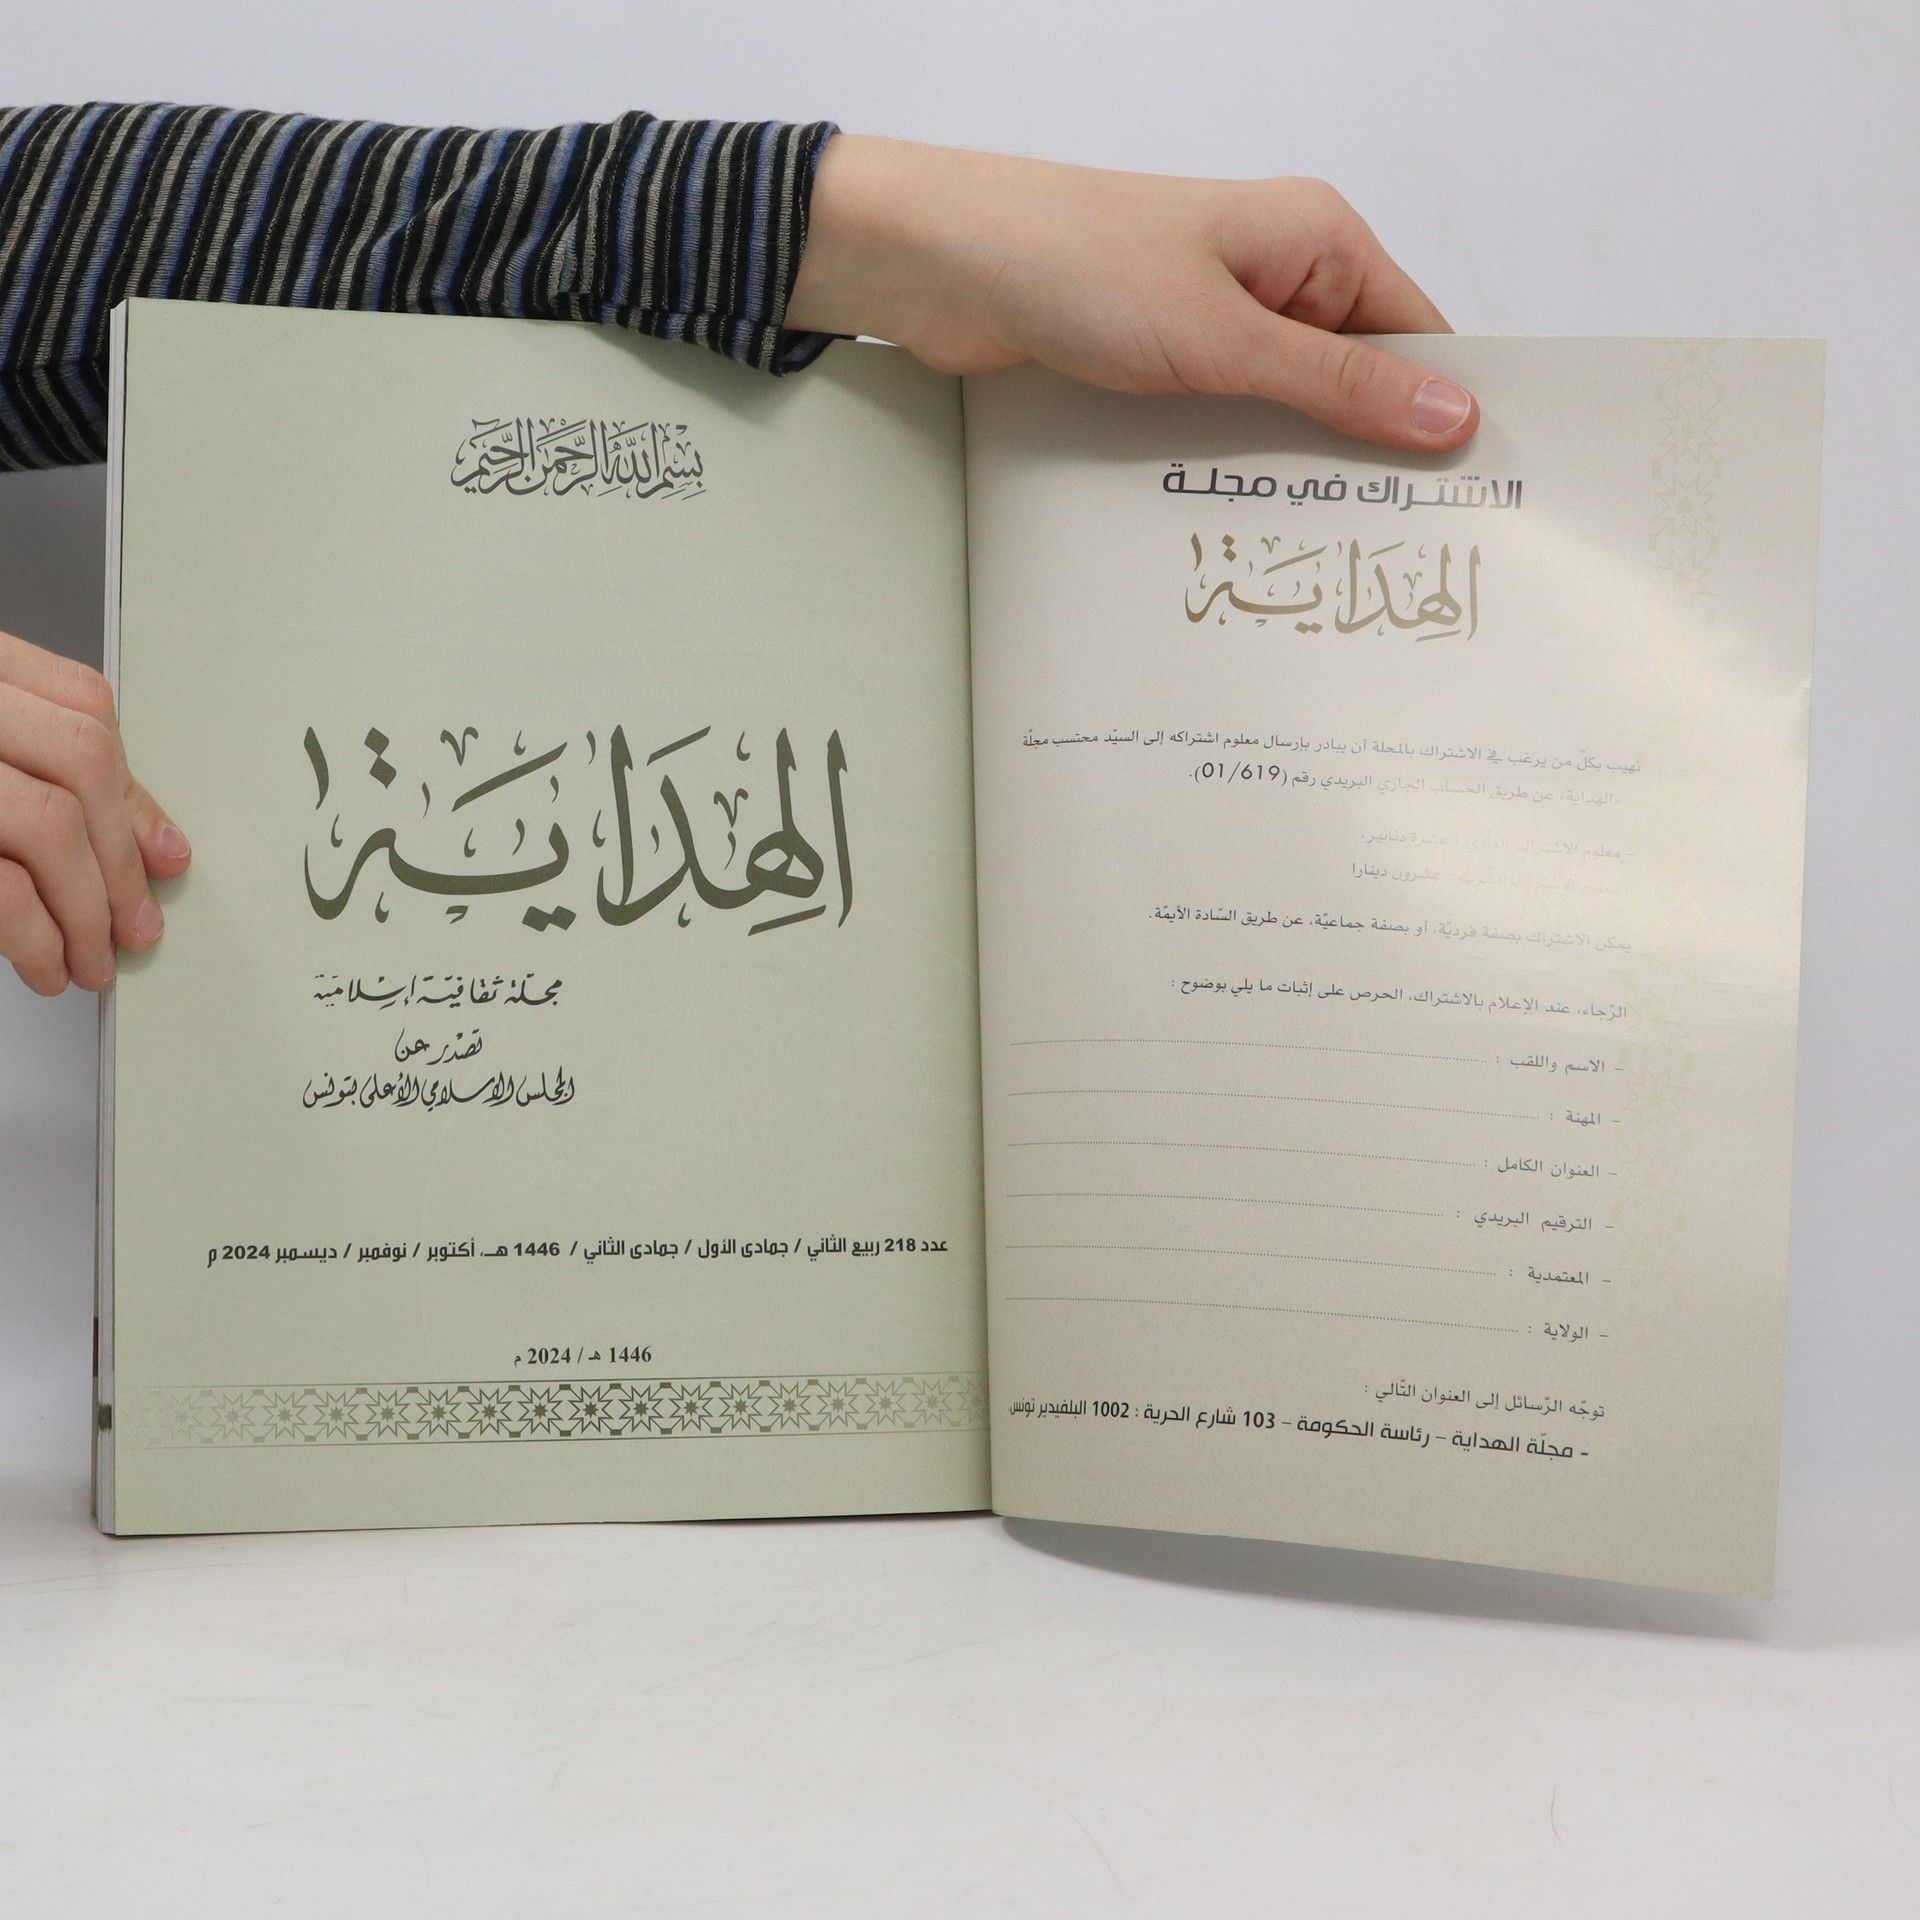 الاشتراك في مجلة
الهداية
نهيب بكلّ من يرغب في الاشتراك بالمجلة أن يبادر بإرسال معلوم اشتراكه إلى السيّد محتسب مجلّة
«الهداية» عن طريق الحساب الجاري البريدي رقم (01/619).
- معلوم الاشتراك العادي : عشرة دنانير.
معلوم الاشتراك عشرون دينارا
يمكن الاشتراك بصفة فرديّة، أو بصفة جماعيّة، عن طريق السّادة الأيمّة.
الرّجاء، عند الإعلام بالاشتراك، الحرص على إثبات ما يلي بوضوح :
- الاسم واللقب :
- المهنة :
- العنوان الكامل :
- الترقيم البريدي :
- المعتمدية :
- الولاية :
توجّه الرّسائل إلى العنوان التّالي :
- مجلّة الهداية – رئاسة الحكومة – 103 شارع الحرية : 1002 البلفيدير تونس
بِسْمِ اللَّهِ الرَّحْمَنِ الرَّحِيمِ
الهِدَايَة
مجلّة ثقافيّة إسلاميّة
تصدر عن
المجلس الإسلامي الأعلى بتونس
عدد 218 ربيع الثاني / جمادى الأول / جمادى الثاني / 1446 هـ، أكتوبر / نوفمبر / ديسمبر 2024 م
1446 هـ / 2024 م